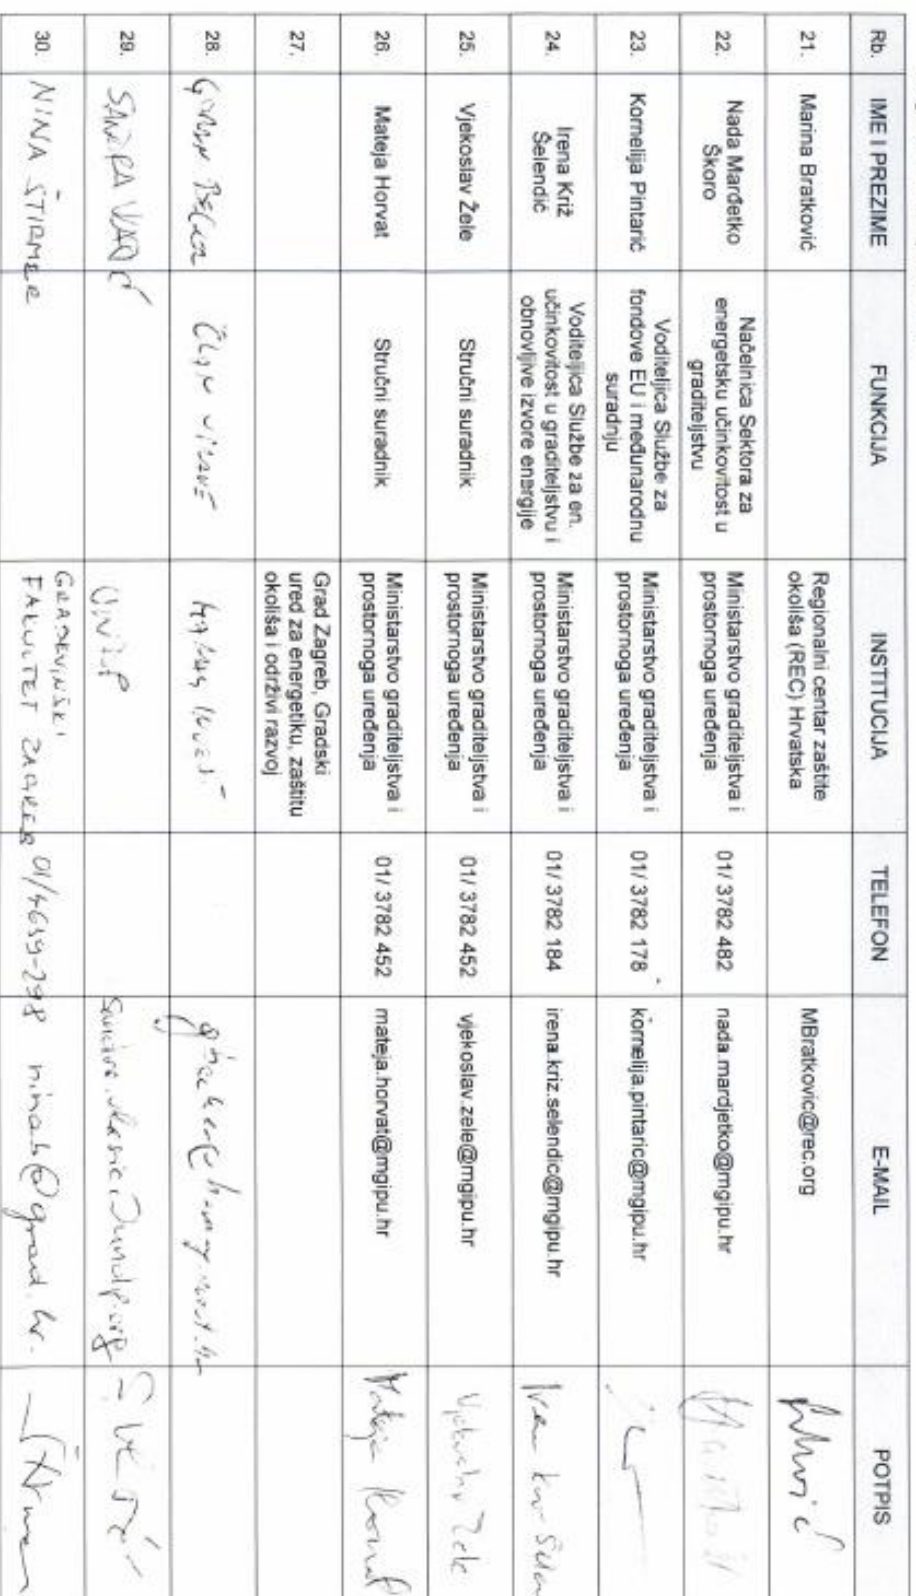 Rb. IME I PREZIME FUNKCIJA INSTITUCIJA TELEFON E-MAIL POTPIS
21. Marina Bratković Regionalni centar zaštite
okoliša (REC) Hrvatska MBratkovic@rec.org
22. Nada Marđetko
Škoro Načelnica Sektora za
energetsku učinkovitost u
graditeljstvu Ministarstvo graditeljstva i
prostornoga uređenja 01/ 3782 482 nada.mardjetko@mgipu.hr
23. Kornelija Pintarić Voditeljica Službe za
fondove EU i međunarodnu
suradnju Ministarstvo graditeljstva i
prostornoga uređenja 01/ 3782 178 kornelija.pintaric@mgipu.hr
24. Irena Križ
Šelendić Voditeljica Službe za en.
učinkovitost u graditeljstvu i
obnovljive izvore energije Ministarstvo graditeljstva i
prostornoga uređenja 01/ 3782 184 irena.kriz.selendic@mgipu.hr
25. Vjekoslav Žele Stručni suradnik Ministarstvo graditeljstva i
prostornoga uređenja 01/ 3782 452 vjekoslav.zele@mgipu.hr
26. Mateja Horvat Stručni suradnik Ministarstvo graditeljstva i
prostornoga uređenja 01/ 3782 452 mateja.horvat@mgipu.hr Mateja Horvat
27. Grad Zagreb, Gradski
ured za energetiku, zaštitu
okoliša i održivi razvoj
28.
29. SANDRA
30. NINA ŠTIRMER GRAĐEVINSKI
FAKULTET ZAGREB ninab@grad.hr.